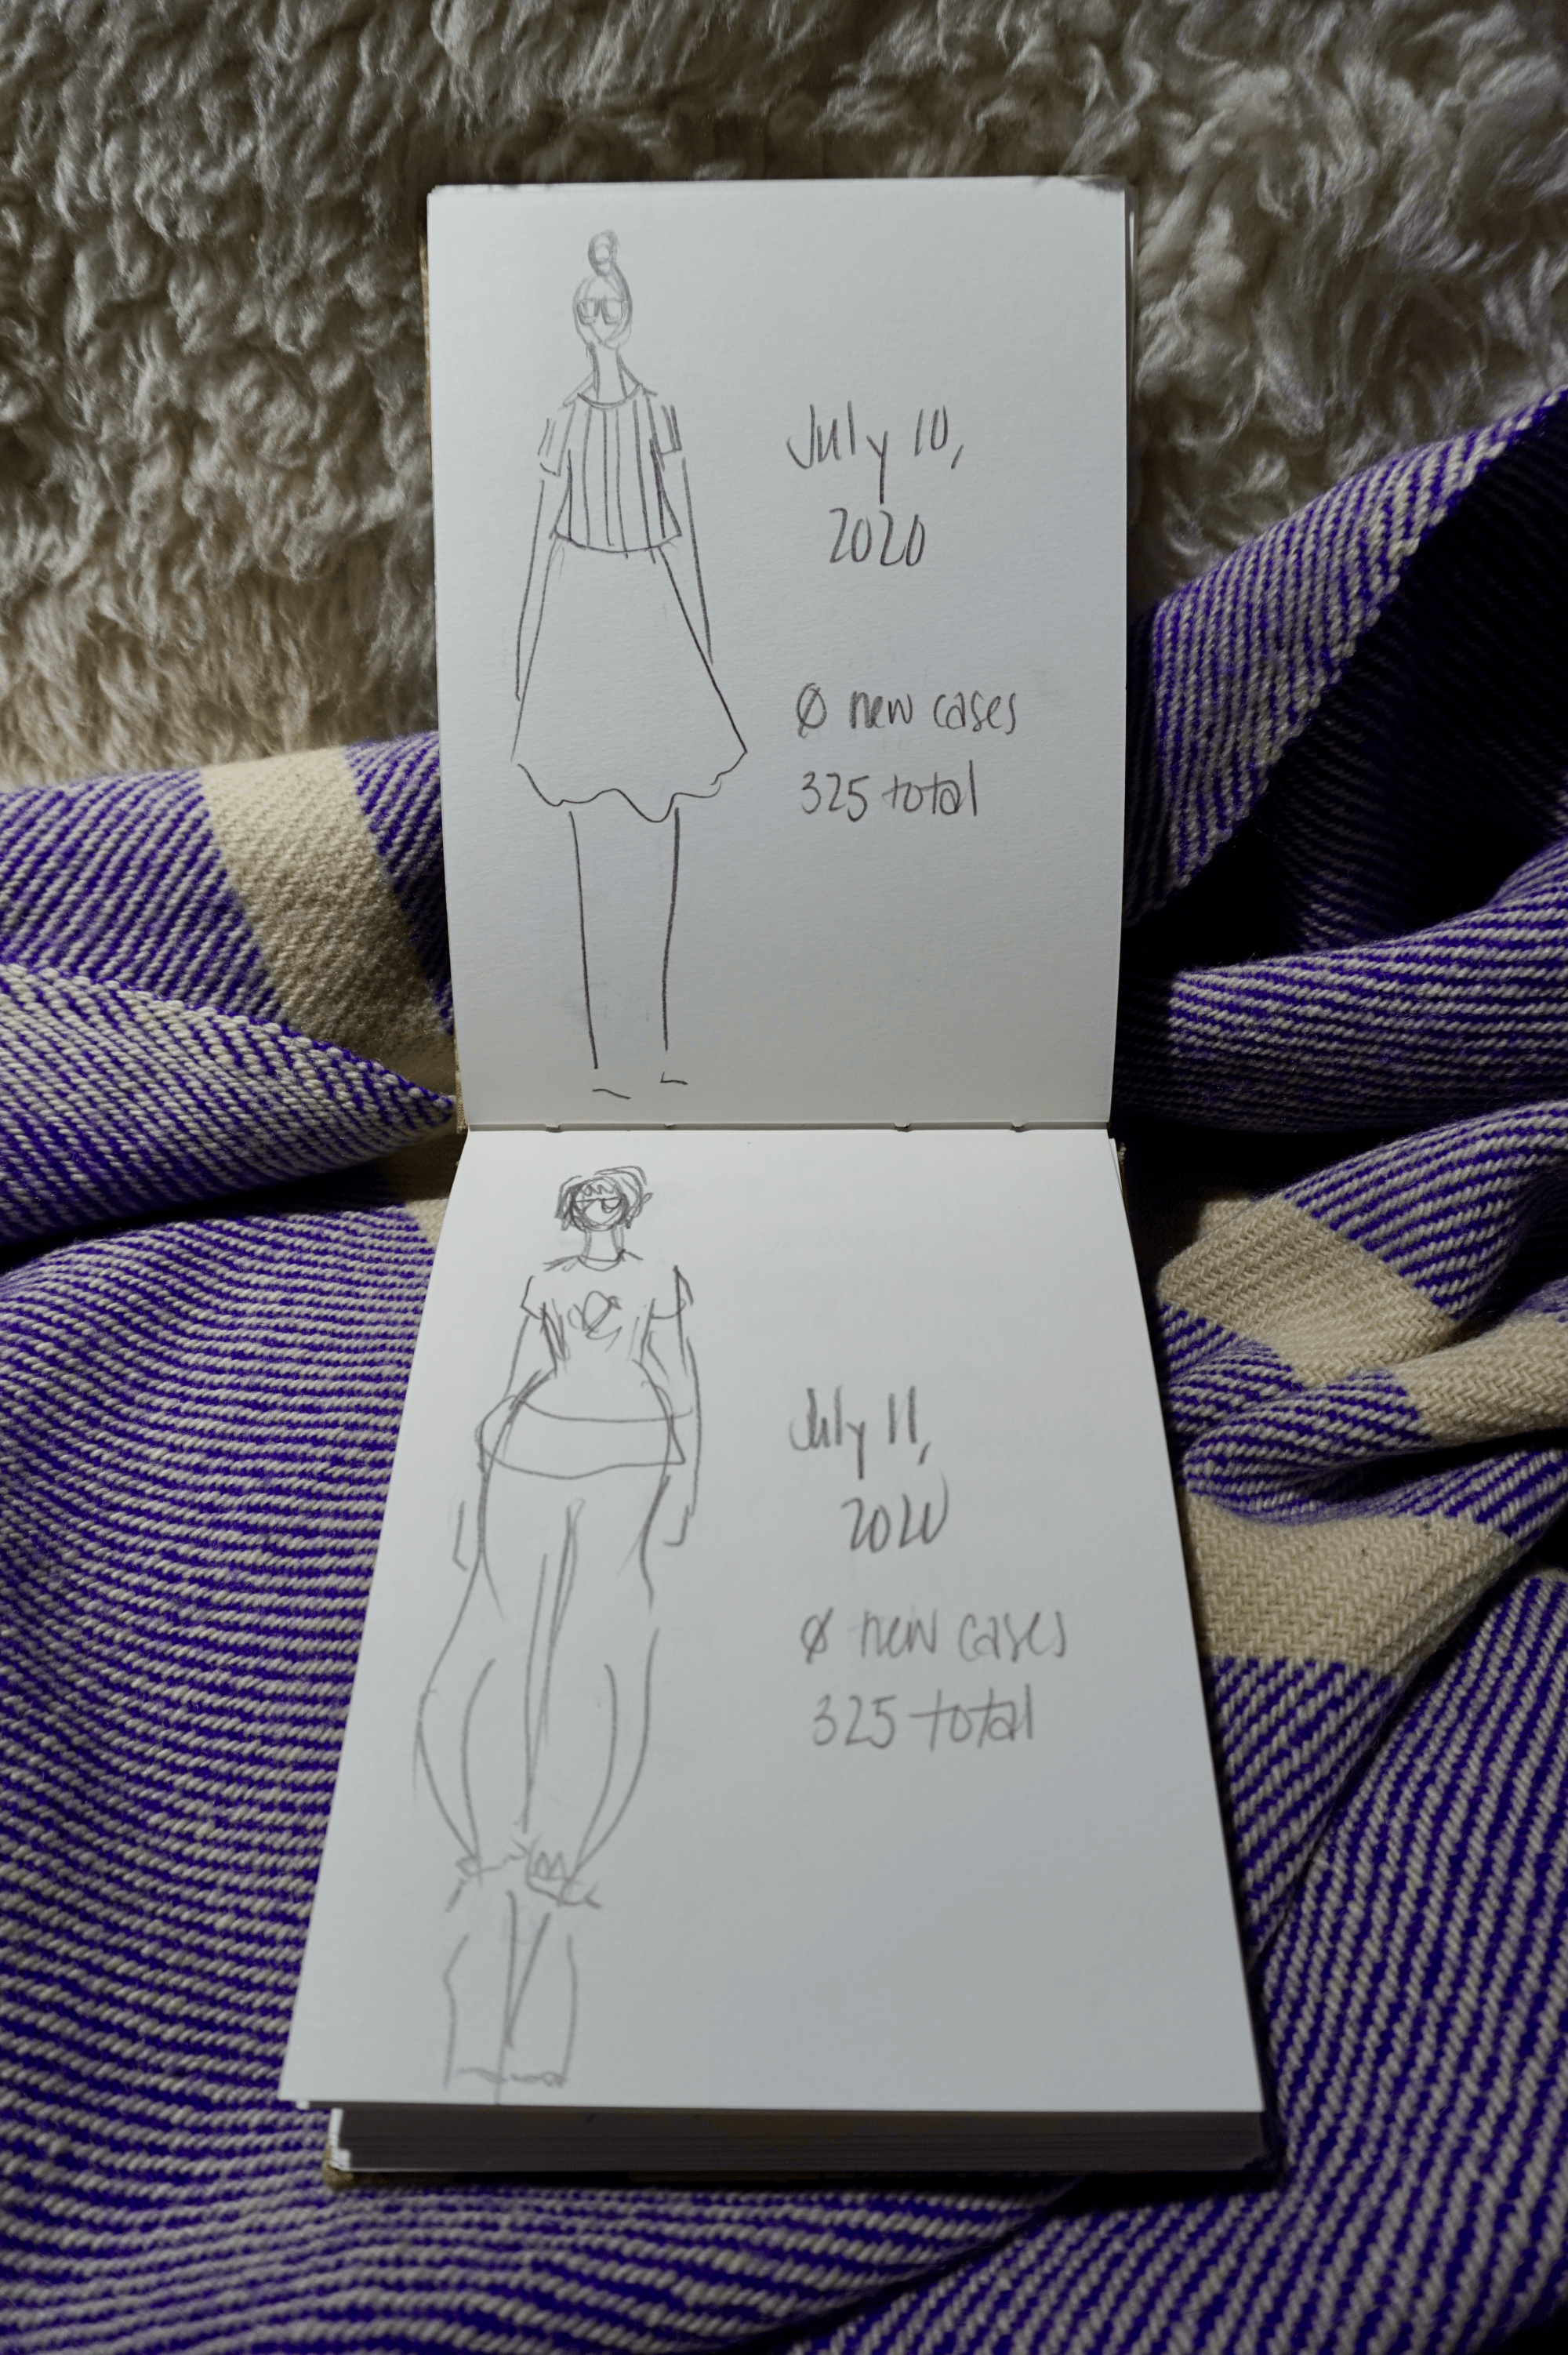 July 10,
2020
Ø new cases
325 total
July 11,
2020
Ø new cases
325 total